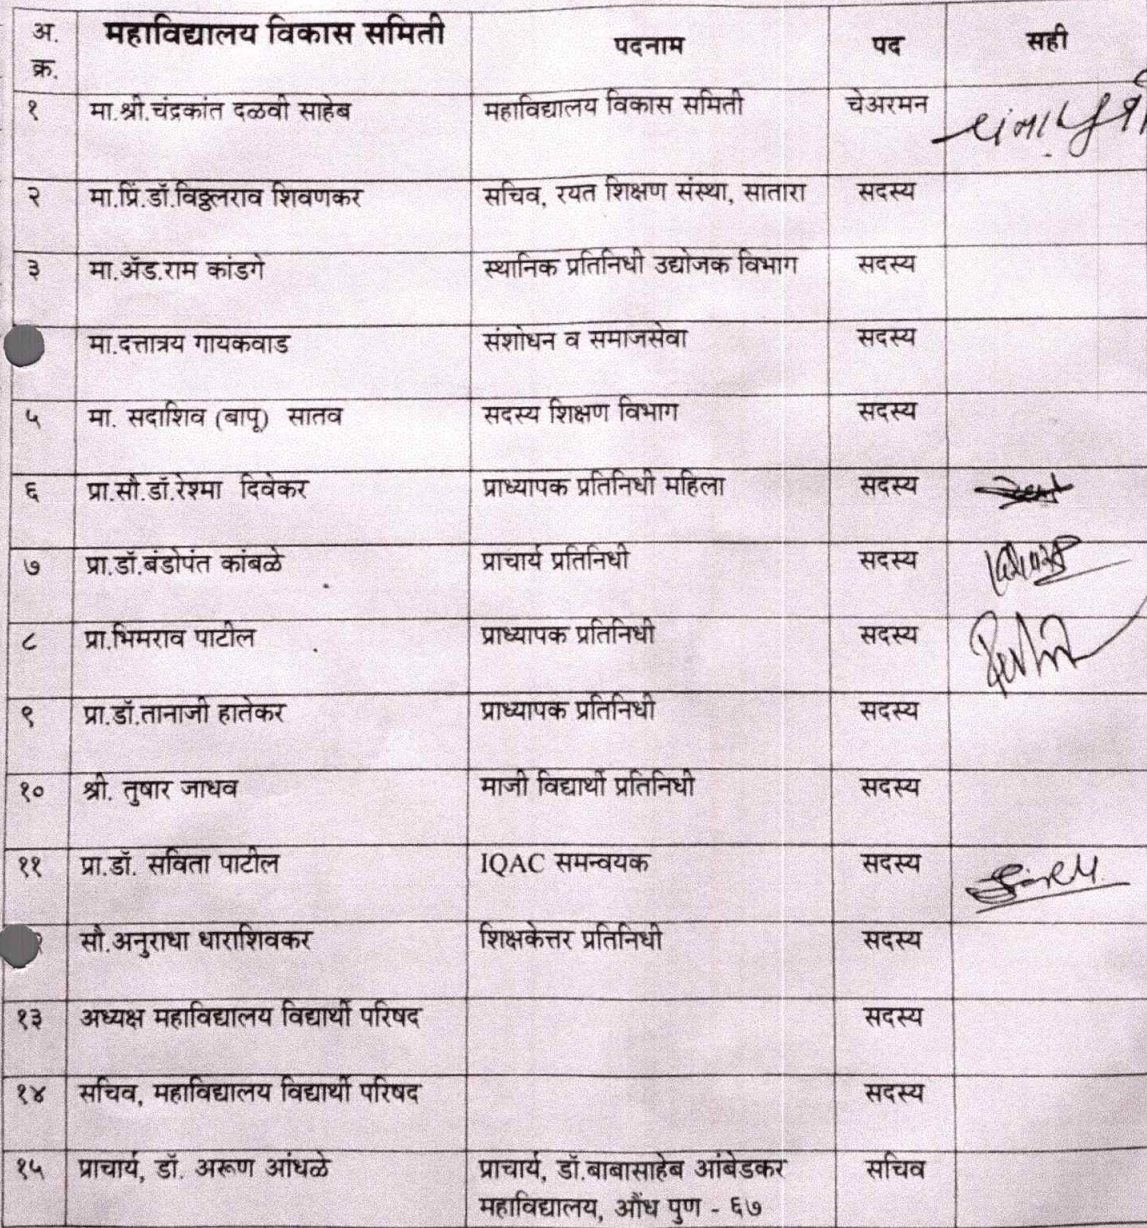 अ. महाविद्यालय विकास समिती पदनाम पद सही
क्र.
१ मा.श्री.चंद्रकांत दळवी साहेब महाविद्यालय विकास समिती चेअरमन
२ मा.प्रिं.डॉ.विठ्ठलराव शिवणकर सचिव, रयत शिक्षण संस्था, सातारा सदस्य
३ मा.अॅड.राम कांडगे स्थानिक प्रतिनिधी उद्योजक विभाग सदस्य
मा.दत्तात्रय गायकवाड संशोधन व समाजसेवा सदस्य
५ मा. सदाशिव (बापू) सातव सदस्य शिक्षण विभाग सदस्य
६ प्रा.सौ.डॉ.रेश्मा दिवेकर प्राध्यापक प्रतिनिधी महिला सदस्य
७ प्रा.डॉ.बंडोपंत कांबळे प्राचार्य प्रतिनिधी सदस्य
८ प्रा.भिमराव पाटील प्राध्यापक प्रतिनिधी सदस्य
९ प्रा.डॉ.तानाजी हातेकर प्राध्यापक प्रतिनिधी सदस्य
१० श्री. तुषार जाधव माजी विद्यार्थी प्रतिनिधी सदस्य
११ प्रा.डॉ. सविता पाटील IQAC समन्वयक सदस्य
सौ.अनुराधा धाराशिवकर शिक्षकेत्तर प्रतिनिधी सदस्य
१३ अध्यक्ष महाविद्यालय विद्यार्थी परिषद सदस्य
१४ सचिव, महाविद्यालय विद्यार्थी परिषद सदस्य
१५ प्राचार्य, डॉ. अरूण आंधळे प्राचार्य, डॉ.बाबासाहेब आंबेडकर सचिव
महाविद्यालय, औंध पुण - ६७